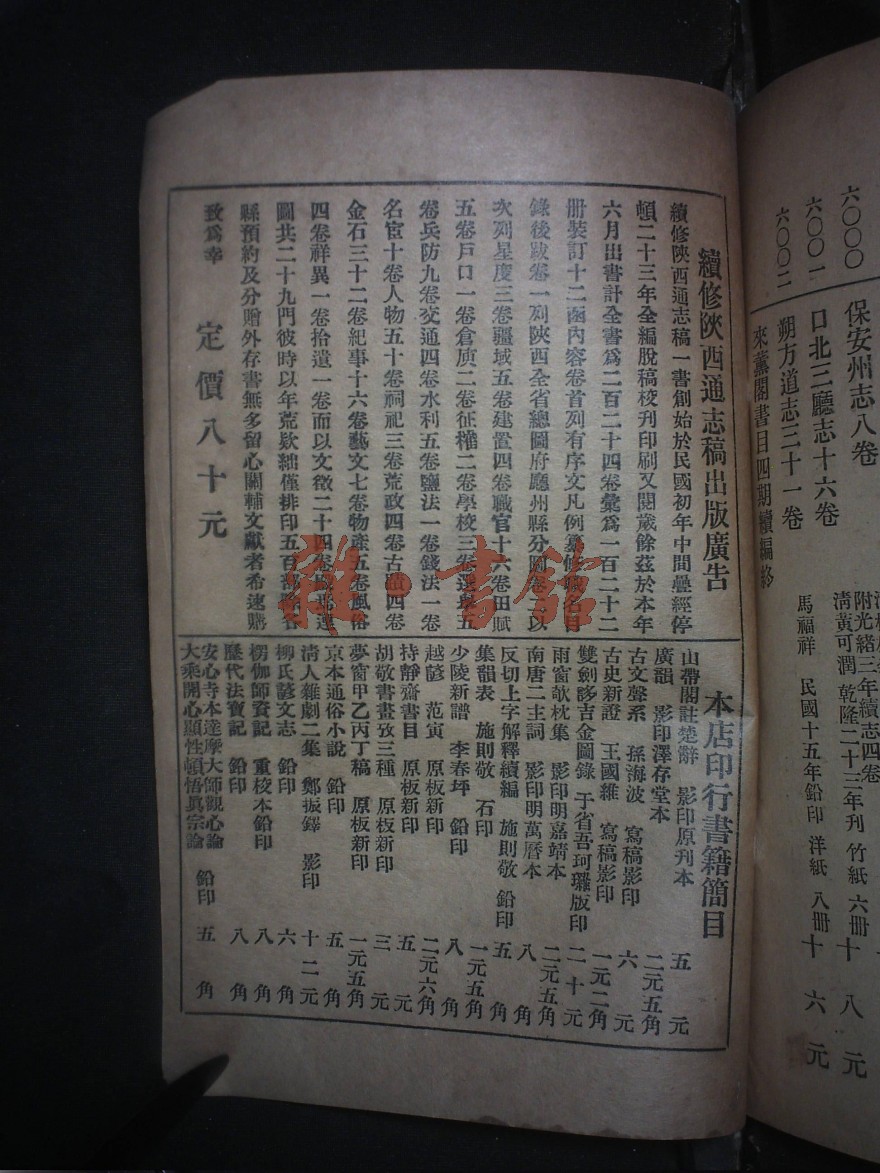 六〇〇〇 保安州志八卷
附光緒三年續志四卷
六〇〇一 口北三廳志十六卷 清黃可潤 乾隆二十三年刊 竹紙 六冊 十八元
六〇〇二 朔方道志三十一卷 馬福祥 民國十五年鉛印 洋紙 八冊 十六元
來薰閣書目四期續編終
續修陝西通志稿出版廣告
續修陝西通志稿一書創始於民國初年中間疊經停
頓二十三年全編脫稿校刊印刷又閱歲餘茲於本年
六月出書計全書爲二百二十四卷彙爲一百二十二
冊裝訂十二函內容卷首列有序文凡例纂修職名目
錄後跋卷一列陝西全省總圖府廳州縣分圖卷二以
次列星度三卷疆域五卷建置四卷職官十六卷田賦
五卷戶口一卷倉庾二卷征榷二卷學校三卷選舉五
卷兵防九卷交通四卷水利五卷鹽法一卷錢法一卷
名宦十卷人物五十卷祠祀三卷荒政四卷古蹟四卷
金石三十二卷紀事十六卷藝文七卷物產五卷風俗
四卷祥異一卷拾遺一卷而以文徵二十四卷
圖共二十九門彼時以年荒欵絀僅排印五百部除各
縣預約及分贈外存書無多留心關輔文獻者希速購
致爲幸 定價八十元
本店印行書籍簡目
山帶閣註楚辭 影印原刊本 五元
廣韻 影印澤存堂本 二元五角
古文聲系 孫海波 寫稿影印 六元
古史新證 王國維 寫稿影印 一元二角
雙劍誃吉金圖錄 于省吾 珂瓓版印 二十元
雨窗欹枕集 影印明嘉靖本 二元五角
南唐二主詞 影印明萬曆本 八角
反切上字解釋續編 施則敬 鉛印 五角
集韻表 施則敬 石印 一元五角
少陵新譜 李春坪 鉛印 八角
越諺 范寅 原板新印 二元六角
持靜齋書目 原板新印 五元
胡敬書畫攷三種 原板新印 三元
夢窗甲乙丙丁稿 原板新印 一元五角
京本通俗小說 鉛印 五角
清人雜劇二集 鄭振鐸 影印 十二元
柳氏諺文志 鉛印 六角
楞伽師資記 重校本鉛印 八角
歷代法寶記 鉛印 八角
安心寺本達摩大師觀心論
大乘開心顯性頓悟眞宗論 鉛印 五角
雜·書館